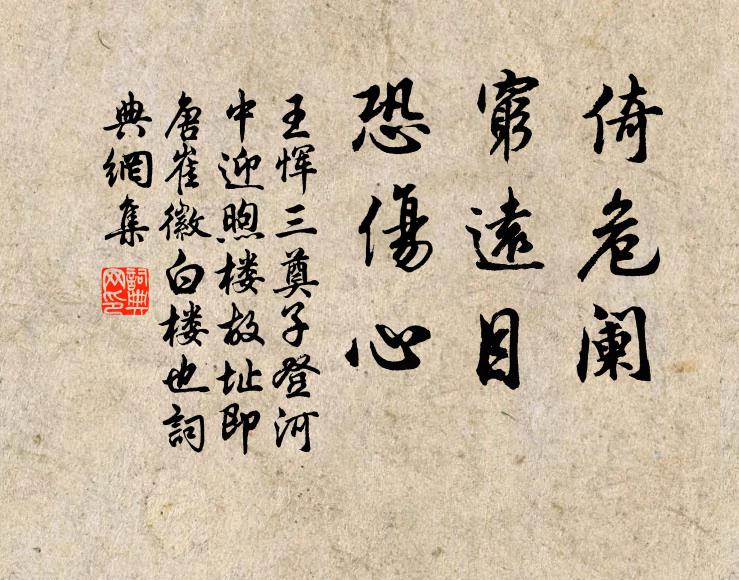 倚危阑
窮遠目
恐傷心
王恽三奠子登河
中迎煦楼故址即
唐崔徽白楼也詞
典網集
詞典
网印